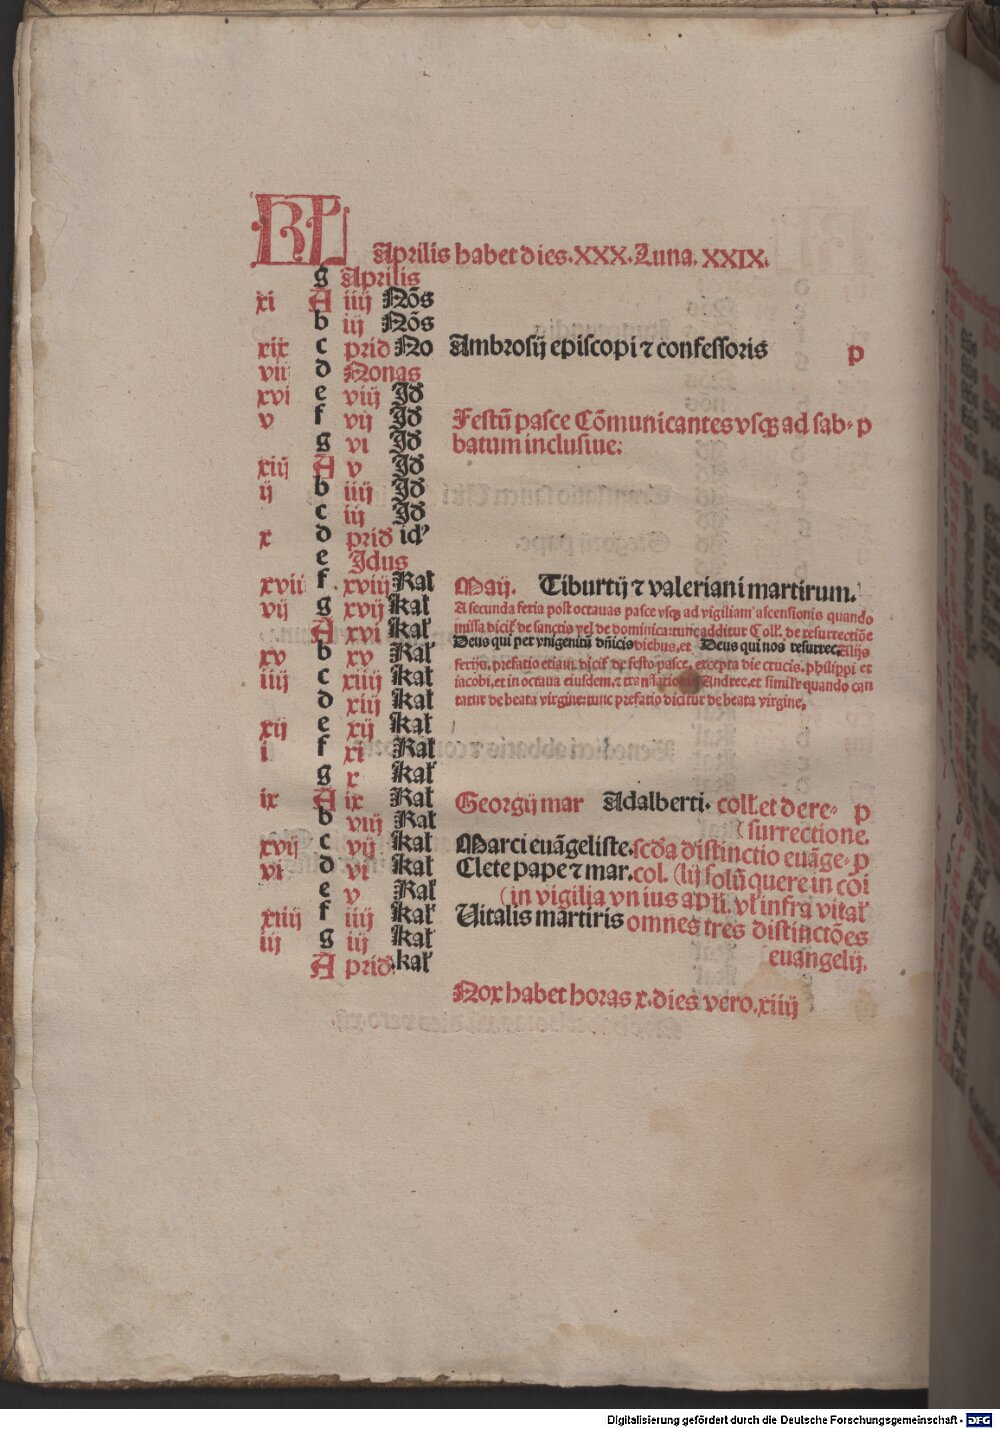 KL Aprilis habet dies.XXX.Luna.XXIX.
g Aprilis
xi A iiij Nōs
b iij Nōs
xix c prid No Ambrosij episcopi ⁊ confessoris p
viij d Nonas
xvi e viij Id
v f vij Id Festū pasce Cōmunicantes vsqꝫ ad sab- p
g vi Id batum inclusiue:
xiij A v Id
ij b iiij Id
c iij Id
x d prid id'
e Idus
xvij f xviij Kal Maij. Tiburtij ⁊ valeriani martirum.
vij g xvij kal A secunda feria post octauas pasce vsqꝫ ad vigiliam ascensionis quando
A xvi kal missa dicit̄ de sanctis vel de dominica: tunc additur Coll̄. de resurrectiōe
xv b xv Kal Deus qui per vnigenitū dn̄icis diebus, et Deus qui nos resurrec. Alijs
iiij c xiiij kal ferijs, prefatio etiam dicit̄ de festo pasce, excepta die crucis, philippi et
d xiij kal iacobi, et in octaua eiusdem, ⁊ translationis Andree, et simil'r quando can
xij e xij kal tatur de beata virgine: tunc prefatio dicitur de beata virgine.
i f xi Kal
g x kal
ix A ix Kal Georgij mar Adalberti. coll̄.et de re- p
b viij Kal (surrectione.
xvij c vij kal Marci euāgeliste. scd̄a distinctio euāge- p
vi d vi kal Clete pape ⁊ mar. col. (lij solū quere in cōi
e v Kal (in vigilia vnius apl̄i. vl̄ infra vital̄
xiiij f iiij kal Uitalis martiris omnes tres distinctōes
iij g iij kal euangelij.
A prid.kal
Nox habet horas x.dies vero.xiiij
Digitalisierung gefördert durch die Deutsche Forschungsgemeinschaft - DFG